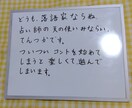 どうも、落語家ならぬ
占い師の天の使いかない、
てんつかです。
ついつい コントを始めて
しまうと 楽しくて遊んで
しまいます。